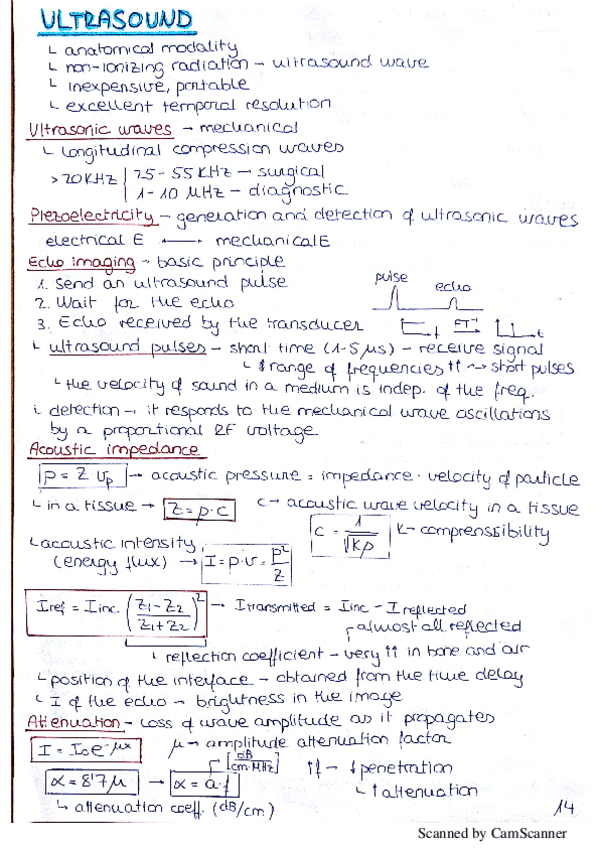 ULTRASOUND
└ anatomical modality
└ non-ionizing radiation - ultrasound wave
└ inexpensive, portable
└ excellent temporal resolution
Ultrasonic waves → mechanical
└ longitudinal compression waves
>20KHz | 25 - 55 KHz - surgical
1 - 10 MHz - diagnostic
Piezoelectricity - generation and detection of ultrasonic waves
electrical E ⟷ mechanical E
Echo imaging - basic principle
pulse echo
1. Send an ultrasound pulse
2. Wait for the echo
3. Echo received by the transducer FT t
└ ultrasound pulses - short time (1-5 μs) - receive signal
└ range of frequencies ↑↑ → short pulses
└ the velocity of sound in a medium is indep. of the freq.
i. detection → it responds to the mechanical wave oscillations
by a proportional RF voltage
Acoustic impedance
p = Z υp → acoustic pressure = impedance · velocity of particle
└ in a tissue → Z = ρ·c c → acoustic wave velocity in a tissue
c = 1/√kρ K- comprenssibility
└ acoustic intensity
(energy flux) → I = p·υ = p²/Z
Iref = Iinc. (Z1-Z2/Z1+Z2)² → Itransmitted = Iinc - Ireflected
almost all reflected
└ reflection coefficient - very ↑↑ in bone and air
└ position of the interface - obtained from the time delay
└ I of the echo - brightness in the image
Attenuation - loss of wave amplitude as it propagates
I = I₀e^-μx μ → amplitude attenuation factor
[dB/cm·MHz]
α = 8'7μ → α = a·f ↑f → ↓penetration
└ ↑attenuation
└ attenuation coeff. (dB/cm)
14
Scanned by CamScanner